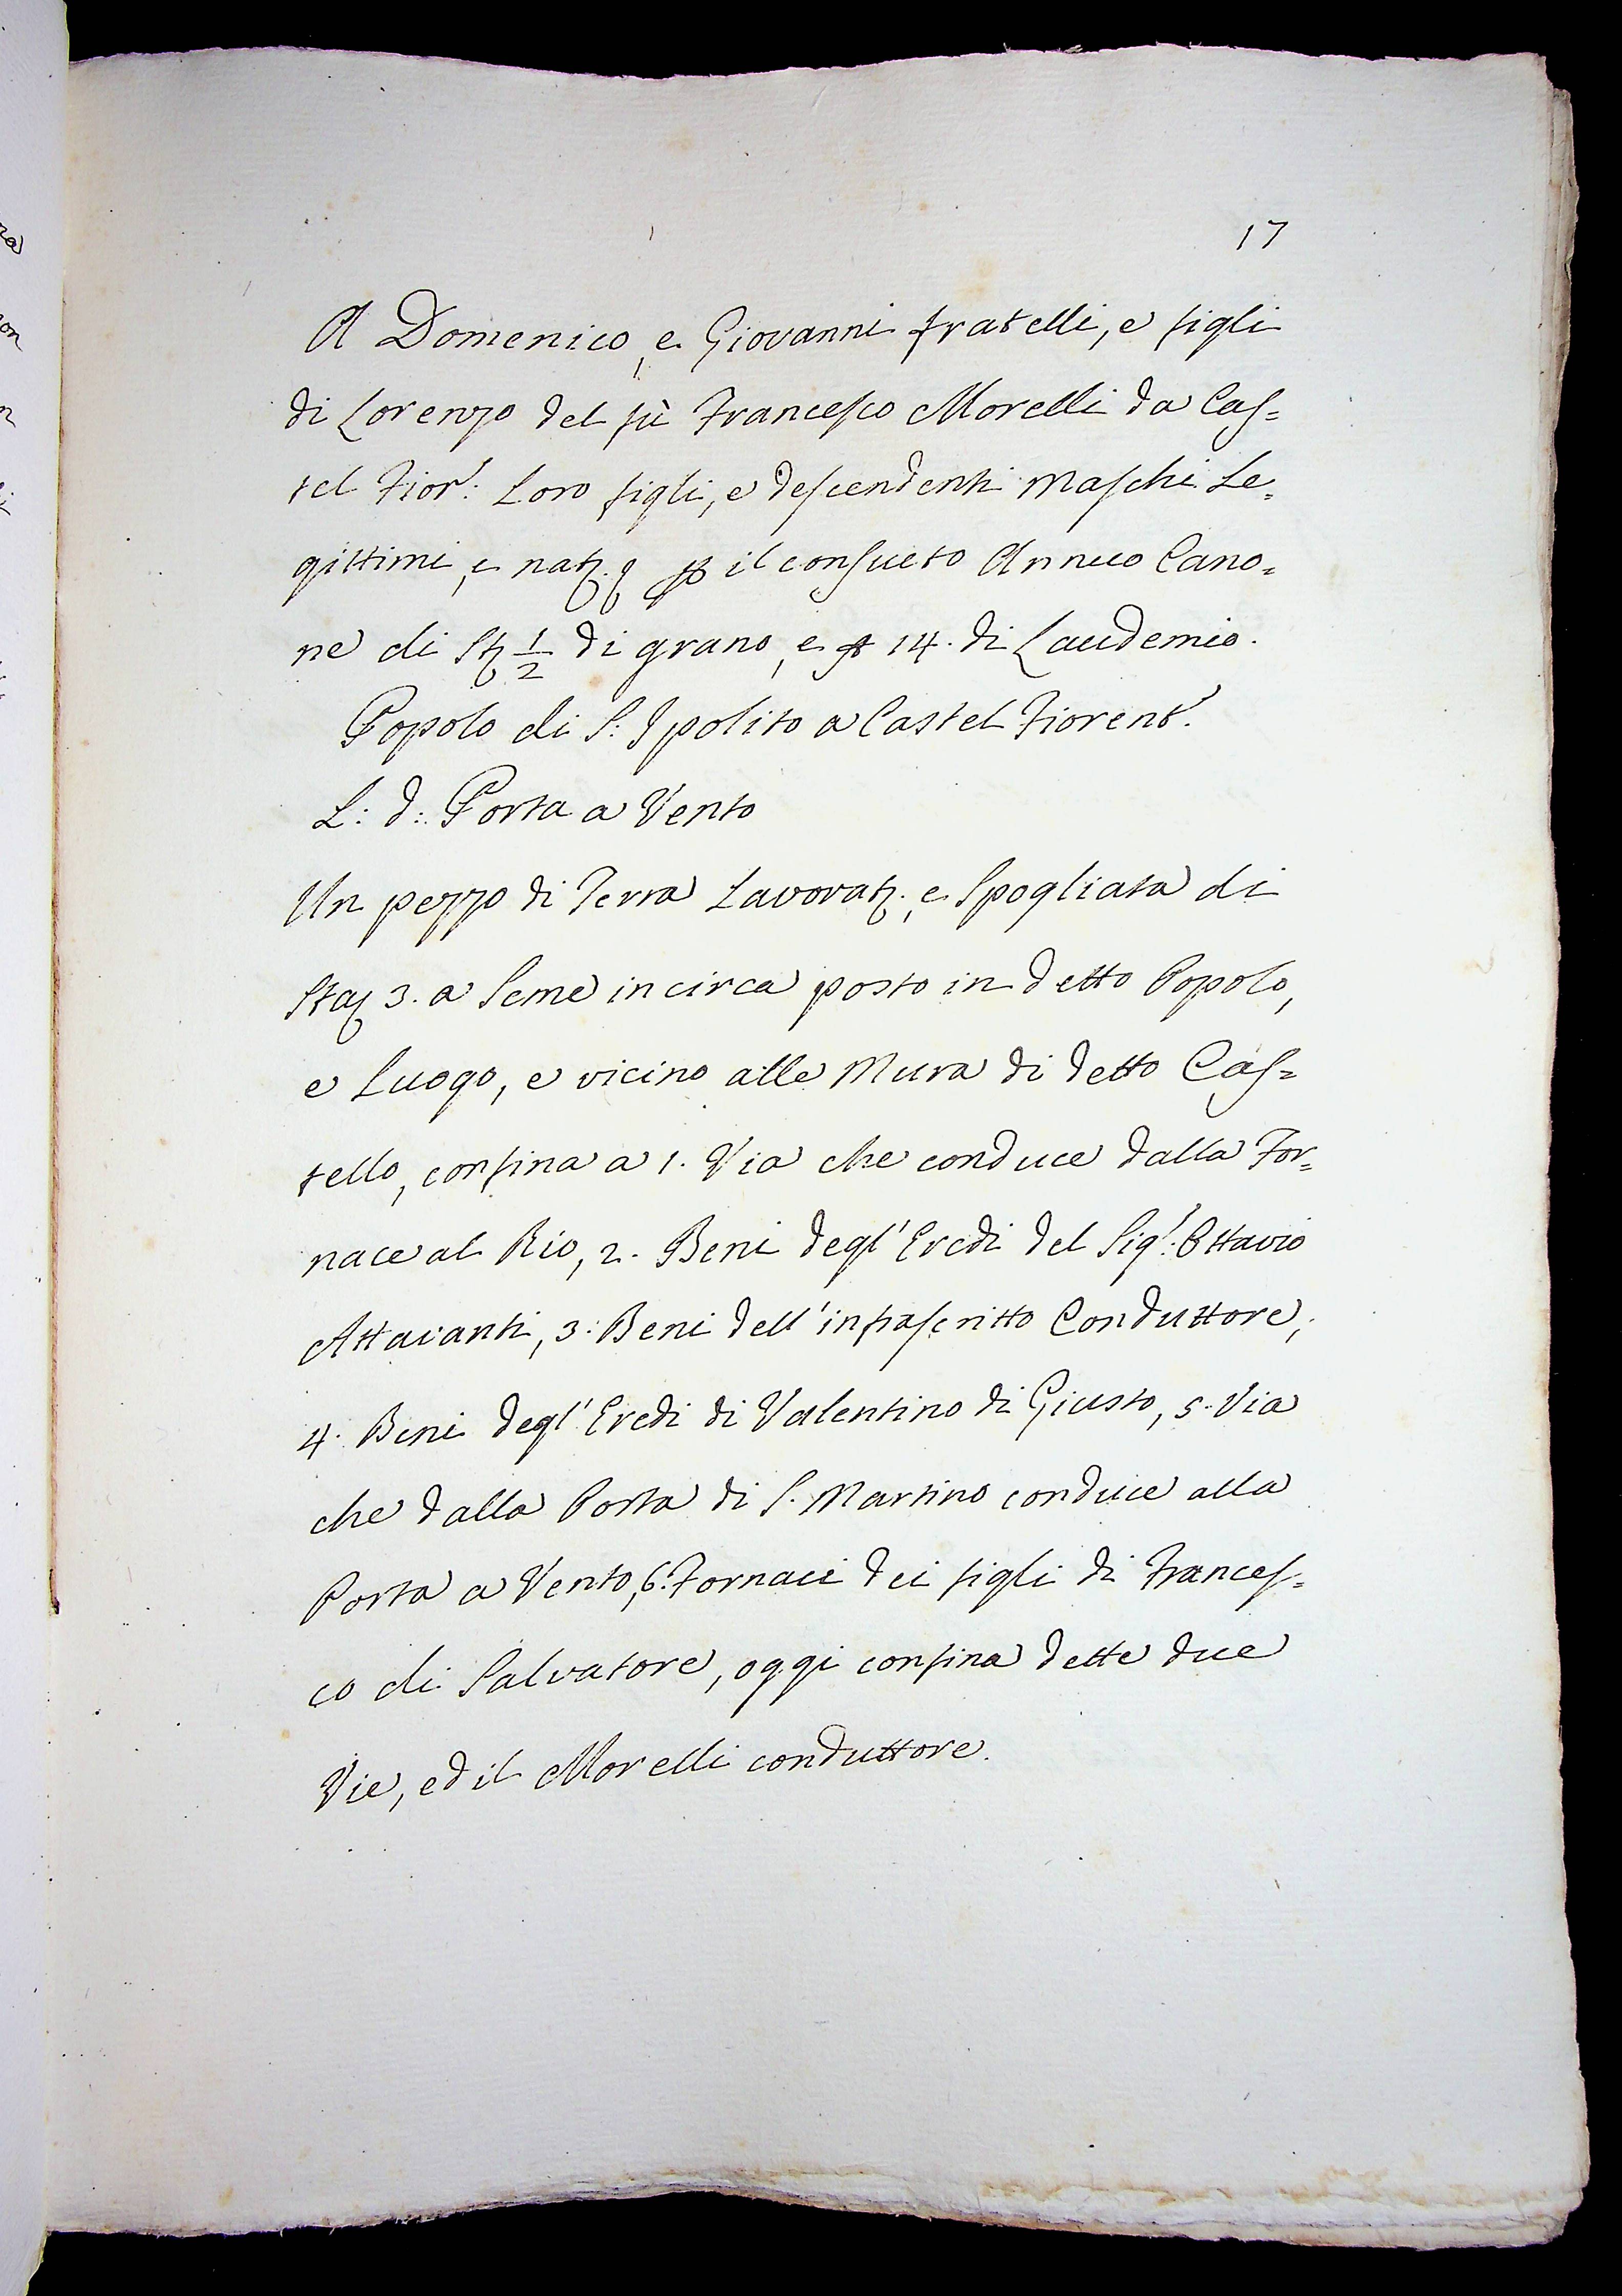 17
A Domenico, e Giovanni fratelli, e figli
di Lorenzo del fù Francesco Morelli da Cas=
tel Fior.: Loro figli, e descendenti Maschi Le=
gittimi, e nat. il consueto Annuo Cano=
ne di St. 1/2 di grano, e 14. di Laudemio.
Popolo di S: Ipolito a Castel Fiorent.
L: d: Porta a Vento
Un pezzo di Terra Lavorat., e Spogliata di
Sta 3. a Seme incirca posto in detto Popolo,
e Luogo, e vicino alle Mura di detto Cas=
tello, confina a 1. Via che conduce dalla For=
nace al Rio, 2. Beni degl' Eredi del Sig.: Ottavio
Attavanti, 3. Beni dell' infrascritto Conduttore,
4. Beni degl' Eredi di Valentino di Giusto, 5. Via
che dalla Porta di S. Martino conduce alla
Porta a Vento, 6. Fornaci dei figli di Frances=
co di Salvatore, oggi confina dette due
Vie, ed il Morelli conduttore.